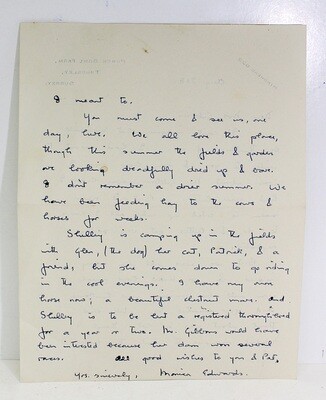 I meant to.
You must come & see us, one
day, here. We all love this place,
though this summer the fields & garden
are looking dreadfully dried up & bare.
I don't remember a drier summer. We
have been feeding hay to the cows &
horses for weeks.
Shelley is camping up in the fields
with Glen, (the dog) her cat, Patrick, & a
friend; but she comes down to go riding
in the cool evenings. I have my own
horse now; a beautiful chestnut mare. and
Shelley is to be lent a registered thoroughbred
for a year or two. Mr. Gibbons would have
been interested because her dam won several
races. All good wishes to you & Pat,
Yrs. sincerely, Monica Edwards.